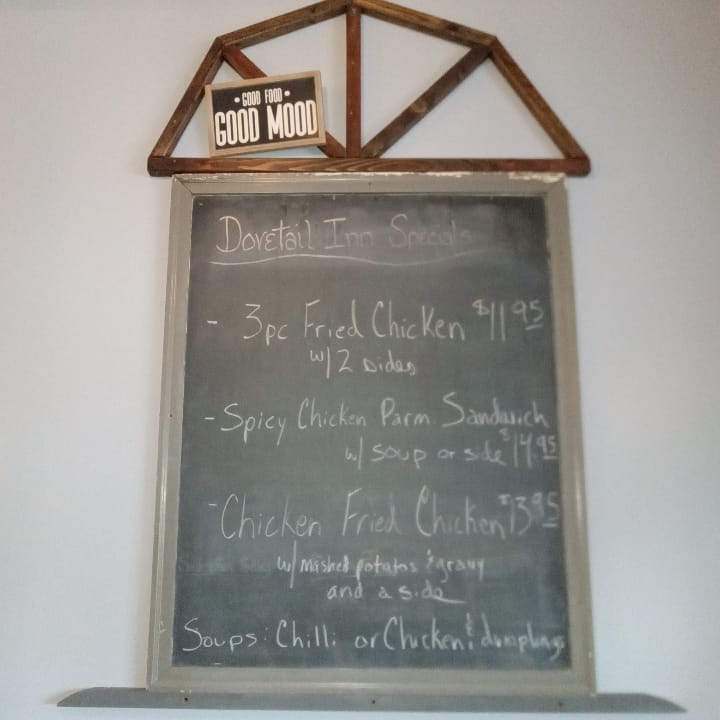 • GOOD FOOD •
GOOD MOOD
Dovetail Inn Specials
- 3pc Fried Chicken $11.95
w/2 sides
- Spicy Chicken Parm. Sandwich
w/ soup or side $14.95
- Chicken Fried Chicken $13.95
w/ mashed potatos & gravy
and a side
Soups: Chilli or Chicken & dumplings